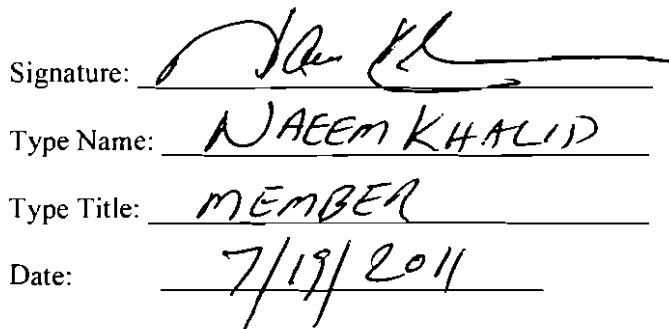 Signature:
Type Name: NAEEM KHALID
Type Title: MEMBER
Date: 7/19/2011